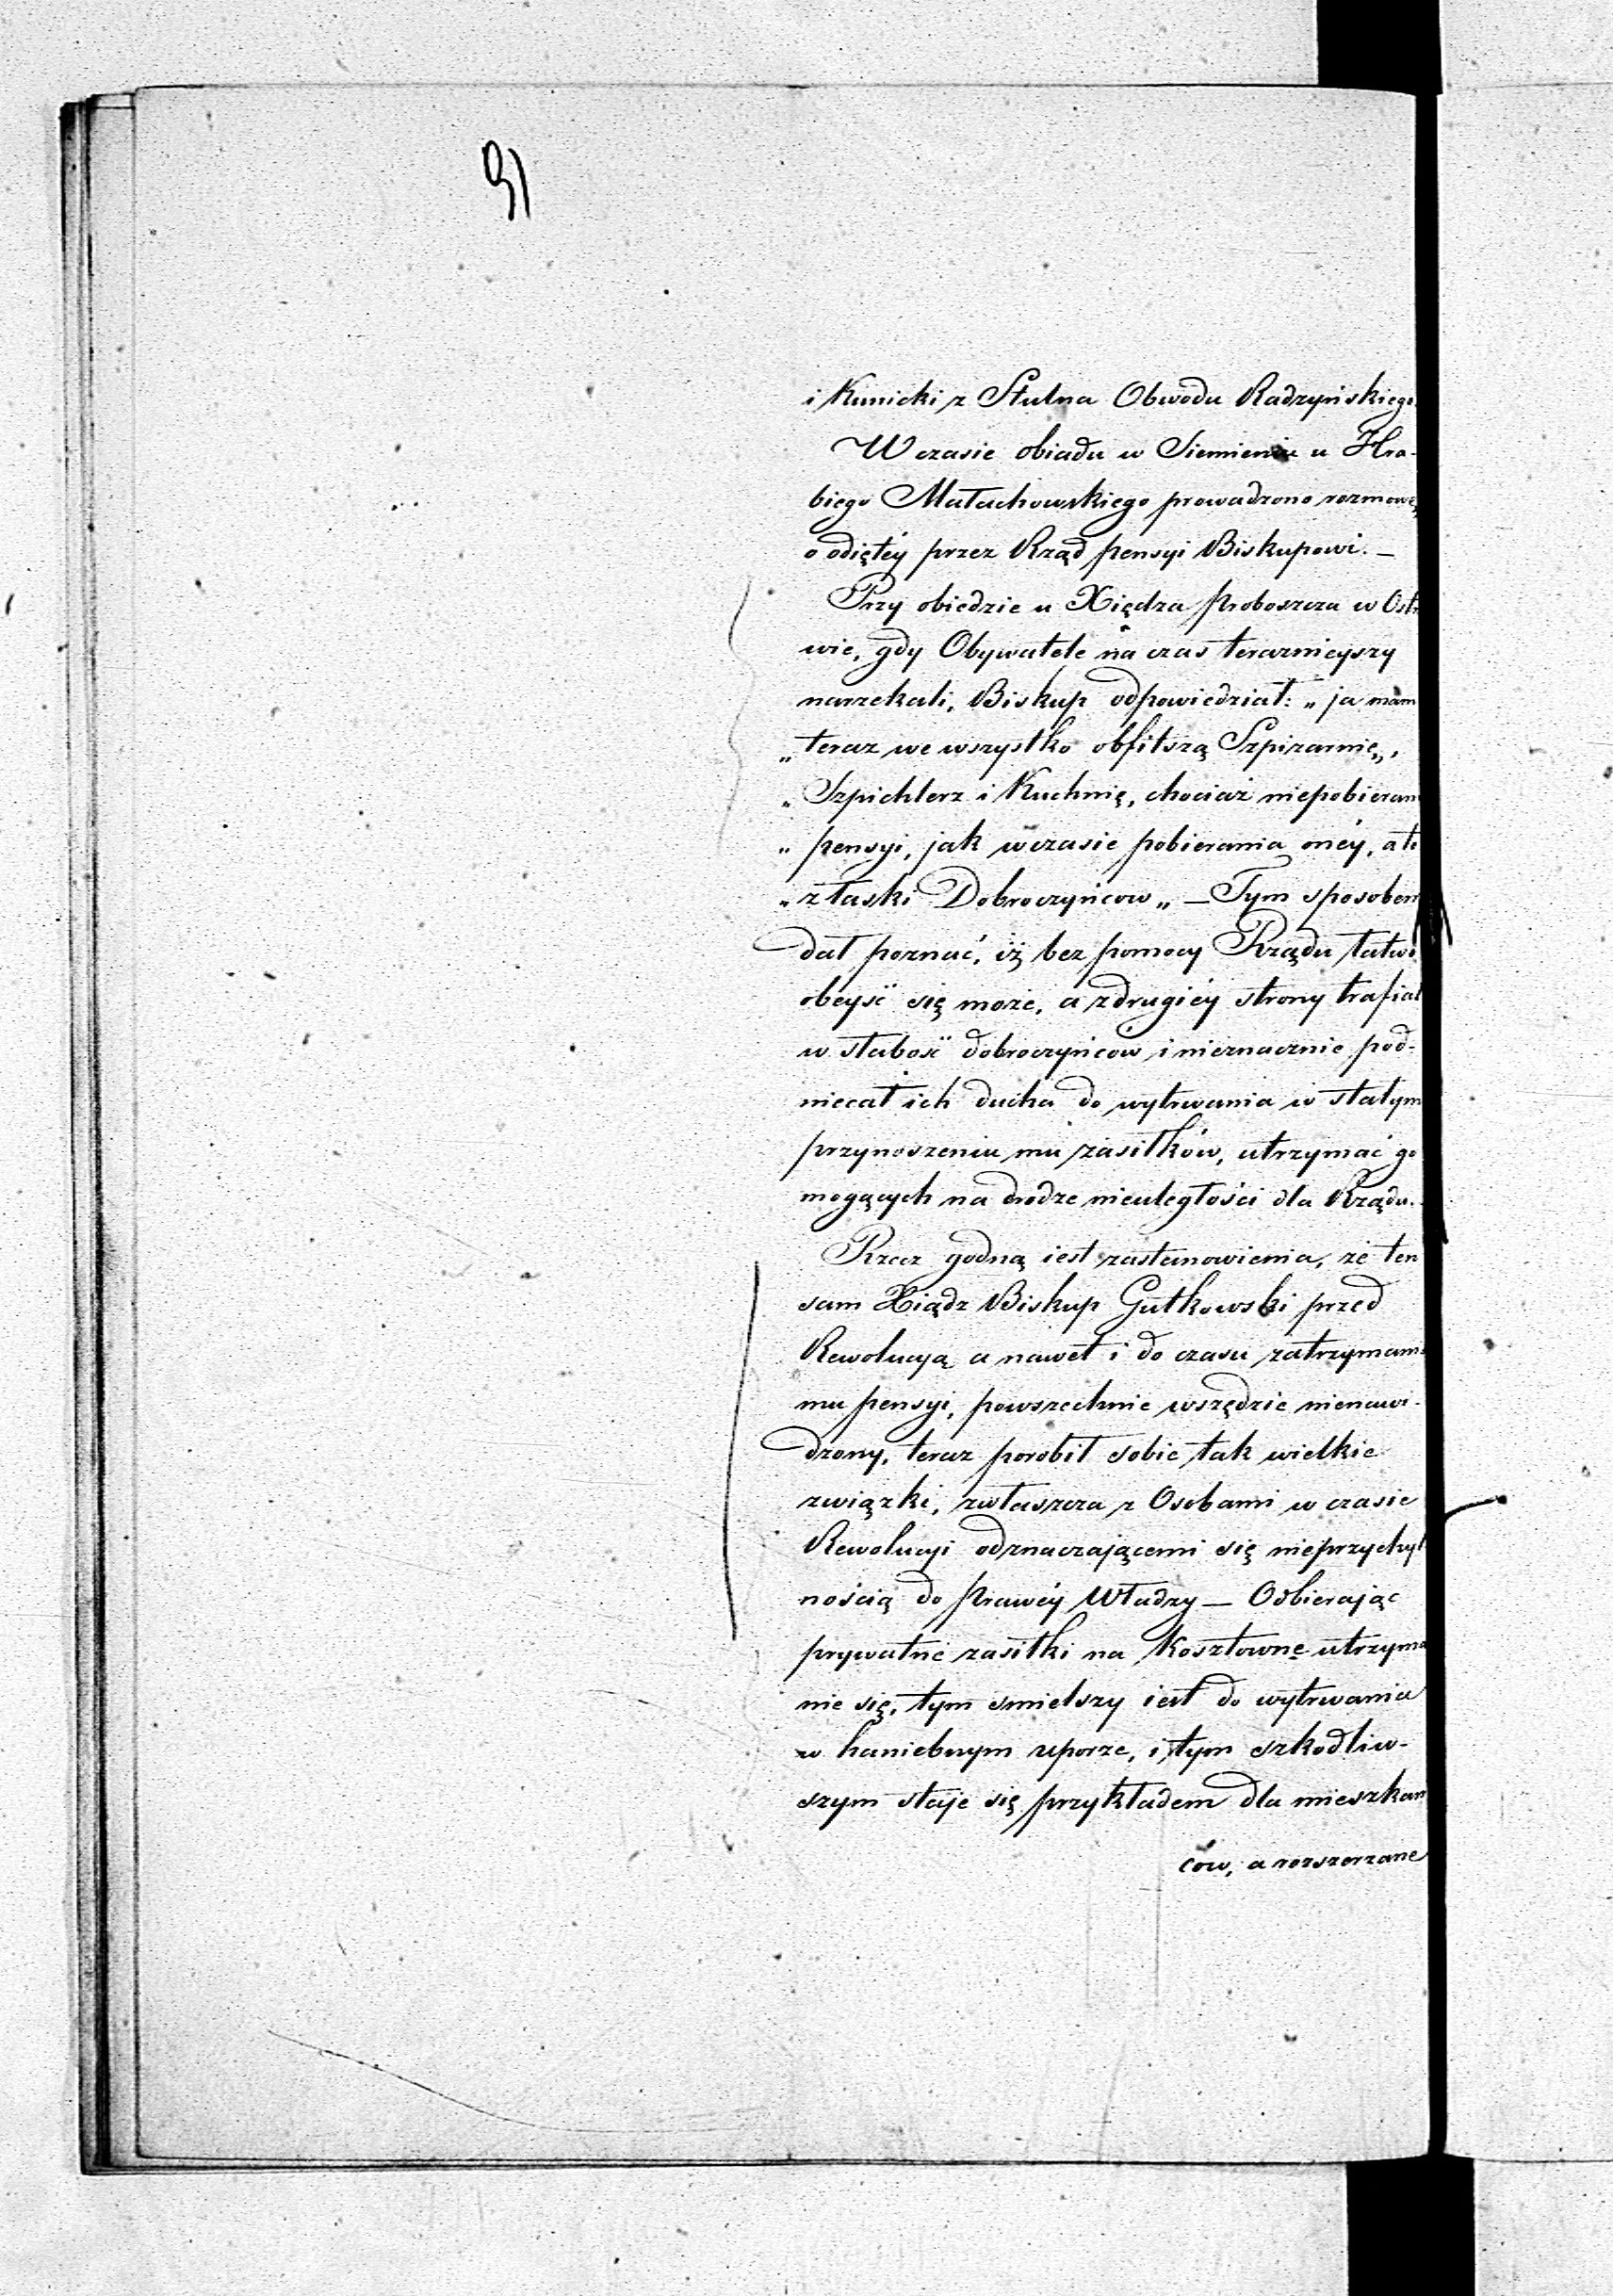 91
i Kunicki z Stulna Obwodu Radzyńskiego
W czasie obiadu w Siemieniu u Hra-
biego Małachowskiego prowadzono rozmowę
o odiętéy przez Rząd pensyi Biskupowi. —
Przy obiedzie u Xiędza Proboszcza w Ost
wie, gdy Obywatele na czas teraznieyszy
narzekali, Biskup odpowiedział: „ja mam
„teraz we wszystko obfitszą Szpizarnię„,
„Szpichlerz i Kuchnię, chociaż niepobieram
„pensyi, jak wczasie pobierania onéy, ale
„z łaski Dobroczyńcow„ — Tym sposobem
dał poznać, iż bez pomocy Rządu łatwo
obeyść się może, a zdrugiéy strony trafiał
w słabość dobroczyńcow i nieznacznie pod-
niecał ich ducha do wytrwania w stałym
przynoszeniu mu zasiłków, utrzymać go
mogących na drodze nieuległości dla Rządu.
Rzecz godną iest zastanowienia, że ten
sam Xiądz Biskup Gutkowski przed
Rewolucyą a nawet i do czasu zatrzymania
mu pensyi, powszechnie wszędzie nienawi-
dzony, teraz porobił sobie tak wielkie
związki, zwłaszcza z Osobami w czasie
Rewolucyi odznaczającemi się nieprzychyl
nością do Prawéy Władzy — Odbierając
prywatne zasiłki na kosztowne utrzyma
nie się, tym smielszy iest do wytrwania
w haniebnym uporze, i tym szkodliw-
szym staje się przykładem dla mieszkań
ców, a rozszerzane